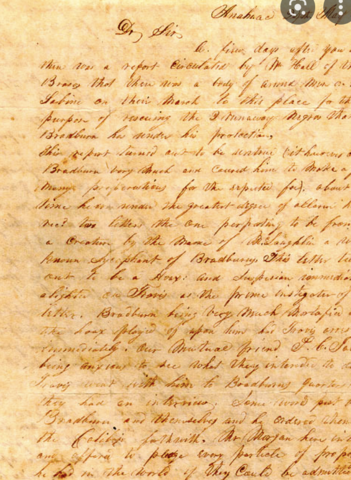 Anahuac
Dr Sir
A few days after you
there was a report circulated by Wm Hall of
Brazos that there was a body of armed men on
Sabine on their March to this place for the
purpose of rescuing the 3 runaway Negros that
Bradburn has under his protection
this report turned out to be
Bradburn very Much and caused him to Make a
many preparations for the reported foe, about
time he was under the greatest degree of alarm he
two letters the one purporting to be from
a Creation by the name of McLaughlin a
known Sycophant of Bradburns This letter
out to be a hoax and Suspicion immediately
alighted on Travis as the prime instigator of
letter. Bradburn being very Much Mortified
the hoax played of upon him has Travis
immediately. our Mutual friend P. C. Ja
being anxious to see what they intended to d
Travis went with him to Bradburns Quarters
they had an interview. Some words past
Bradburn and themselves and he orders them
the Calibozo forthwith. Mr Morgan here
any offers to pledge every particle of prope
he has in the world if they Could be admitted